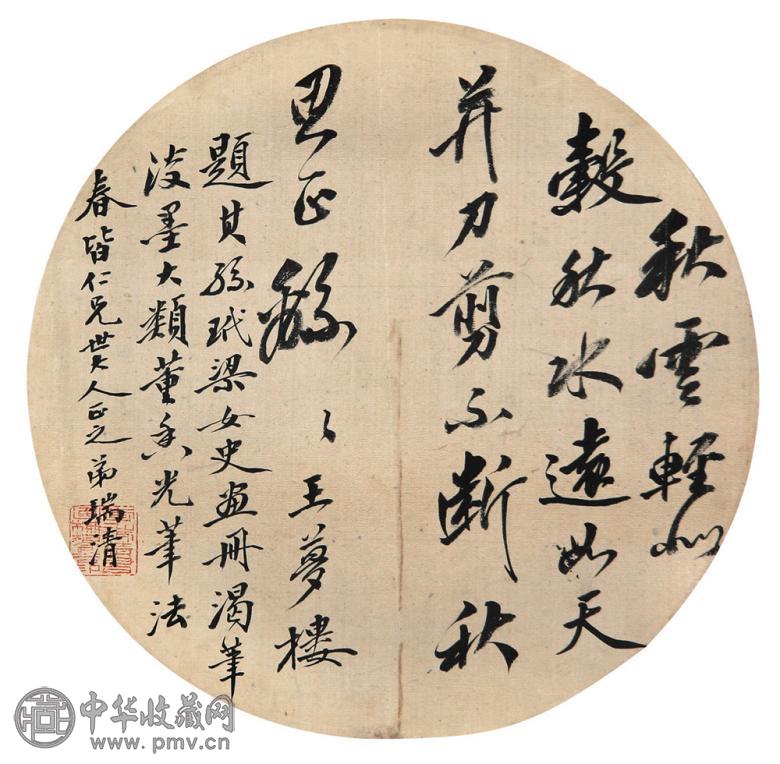 秋雲輕似
縠秋水遠如天
并刀剪不斷秋
思正紛〻王夢樓
題其孫玳梁女史畫冊渴筆
淡墨大類董香光筆法
春皆仁兄世大人正之弟瑞清
中华收藏网
www.pmv.cn